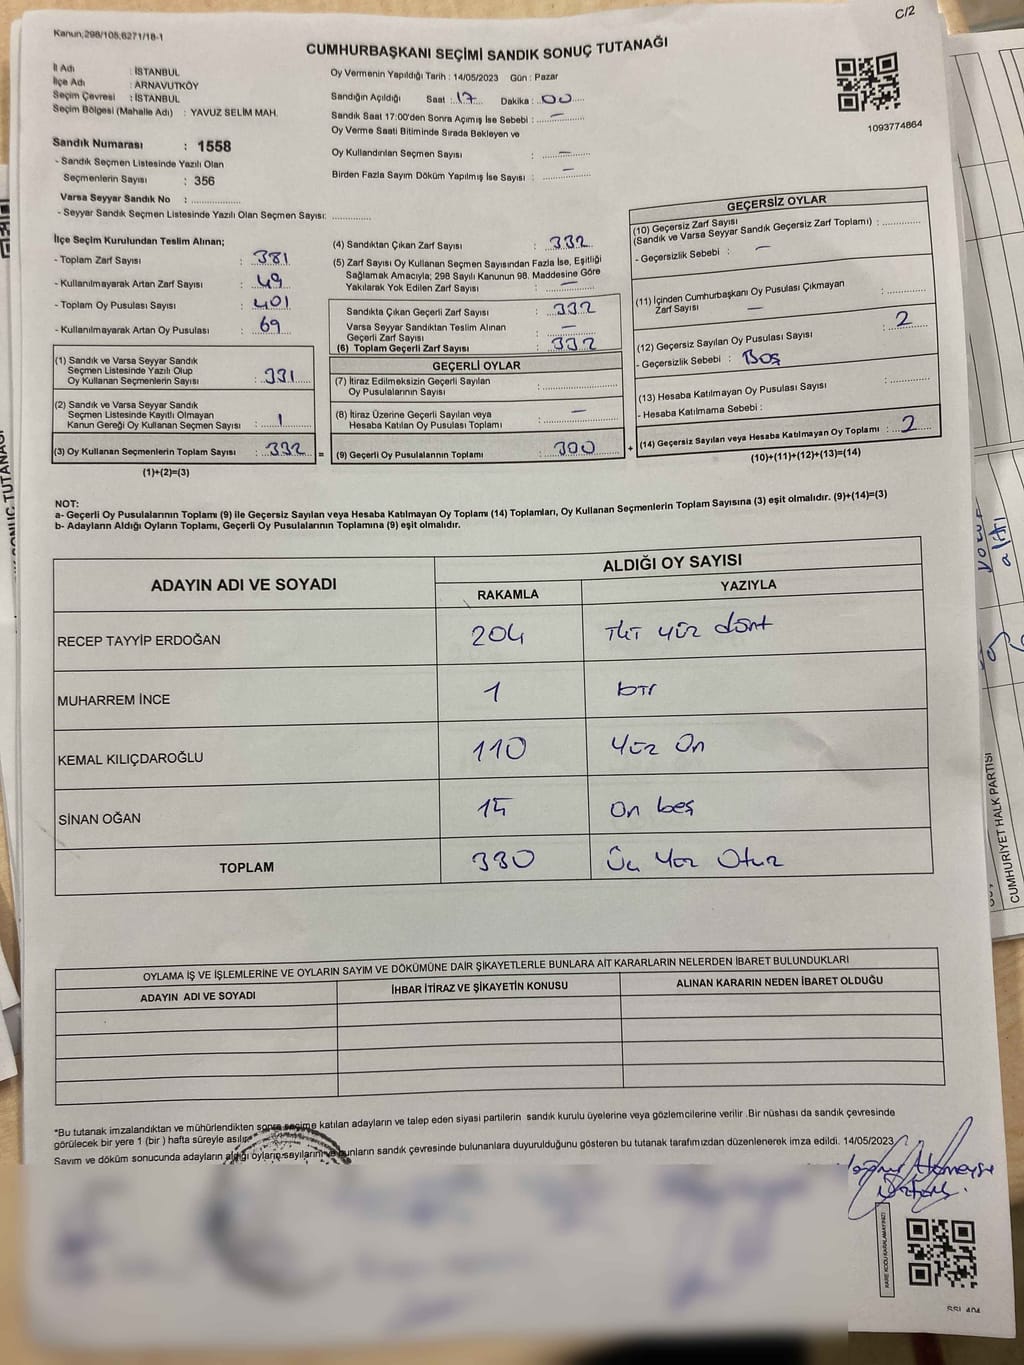 C/2
Kanun;298/105,6271/18-1
CUMHURBAŞKANI SEÇİMİ SANDIK SONUÇ TUTANAĞI
İl Adı : İSTANBUL
İlçe Adı : ARNAVUTKÖY
Seçim Çevresi : İSTANBUL
Seçim Bölgesi (Mahalle Adı) : YAVUZ SELİM MAH.
Oy Vermenin Yapıldığı Tarih : 14/05/2023 Gün : Pazar
Sandığın Açıldığı Saat : 17 Dakika : 00
Sandık Saat 17:00'den Sonra Açımış İse Sebebi : —
Oy Verme Saati Bitiminde Sırada Bekleyen ve
Oy Kullandırılan Seçmen Sayısı : —
Birden Fazla Sayım Döküm Yapılmış İse Sayısı : —
1093774864
Sandık Numarası : 1558
- Sandık Seçmen Listesinde Yazılı Olan
Seçmenlerin Sayısı : 356
Varsa Seyyar Sandık No : ..............
- Seyyar Sandık Seçmen Listesinde Yazılı Olan Seçmen Sayısı: ............
İlçe Seçim Kurulundan Teslim Alınan;
- Toplam Zarf Sayısı : 381
- Kullanılmayarak Artan Zarf Sayısı : 49
- Toplam Oy Pusulası Sayısı : 401
- Kullanılmayarak Artan Oy Pusulası : 69
(1) Sandık ve Varsa Seyyar Sandık
Seçmen Listesinde Yazılı Olup
Oy Kullanan Seçmenlerin Sayısı : 331
(2) Sandık ve Varsa Seyyar Sandık
Seçmen Listesinde Kayıtlı Olmayan
Kanun Gereği Oy Kullanan Seçmen Sayısı : 1
(3) Oy Kullanan Seçmenlerin Toplam Sayısı : 332 =
(1)+(2)=(3)
(4) Sandıktan Çıkan Zarf Sayısı : 332
(5) Zarf Sayısı Oy Kullanan Seçmen Sayısından Fazla İse, Eşitliği
Sağlamak Amacıyla; 298 Sayılı Kanunun 98. Maddesine Göre
Yakılarak Yok Edilen Zarf Sayısı : —
Sandıkta Çıkan Geçerli Zarf Sayısı : 332
Varsa Seyyar Sandıktan Teslim Alınan
Geçerli Zarf Sayısı : —
(6) Toplam Geçerli Zarf Sayısı : 332
GEÇERLİ OYLAR
(7) İtiraz Edilmeksizin Geçerli Sayılan
Oy Pusulalarının Sayısı :
(8) İtiraz Üzerine Geçerli Sayılan veya
Hesaba Katılan Oy Pusulası Toplamı : —
(9) Geçerli Oy Pusulalarının Toplamı : 330 +
GEÇERSİZ OYLAR
(10) Geçersiz Zarf Sayısı
(Sandık ve Varsa Seyyar Sandık Geçersiz Zarf Toplamı) : ............
- Geçersizlik Sebebi : —
(11) İçinden Cumhurbaşkanı Oy Pusulası Çıkmayan
Zarf Sayısı — : ............
(12) Geçersiz Sayılan Oy Pusulası Sayısı : 2
- Geçersizlik Sebebi : Boş
(13) Hesaba Katılmayan Oy Pusulası Sayısı : ............
- Hesaba Katılmama Sebebi :
(14) Geçersiz Sayılan veya Hesaba Katılmayan Oy Toplamı : 2
(10)+(11)+(12)+(13)=(14)
NOT:
a- Geçerli Oy Pusulalarının Toplamı (9) ile Geçersiz Sayılan veya Hesaba Katılmayan Oy Toplamı (14) Toplamları, Oy Kullanan Seçmenlerin Toplam Sayısına (3) eşit olmalıdır. (9)+(14)=(3)
b- Adayların Aldığı Oyların Toplamı, Geçerli Oy Pusulalarının Toplamına (9) eşit olmalıdır.
ADAYIN ADI VE SOYADI ALDIĞI OY SAYISI
RAKAMLA YAZIYLA
RECEP TAYYİP ERDOĞAN 204 İki yüz dört
MUHARREM İNCE 1 bir
KEMAL KILIÇDAROĞLU 110 Yüz On
SİNAN OĞAN 15 On beş
TOPLAM 330 Üç Yüz Otuz
OYLAMA İŞ VE İŞLEMLERİNE VE OYLARIN SAYIM VE DÖKÜMÜNE DAİR ŞİKAYETLERLE BUNLARA AİT KARARLARIN NELERDEN İBARET BULUNDUKLARI
ADAYIN ADI VE SOYADI İHBAR İTİRAZ VE ŞİKAYETİN KONUSU ALINAN KARARIN NEDEN İBARET OLDUĞU
*Bu tutanak imzalandıktan ve mühürlendikten sonra seçime katılan adayların ve talep eden siyasi partilerin sandık kurulu üyelerine veya gözlemcilerine verilir .Bir nüshası da sandık çevresinde
görülecek bir yere 1 (bir ) hafta süreyle asılır.
Sayım ve döküm sonucunda adayların aldığı oyların sayılarını ve bunların sandık çevresinde bulunanlara duyurulduğunu gösteren bu tutanak tarafımızdan düzenlenerek imza edildi. 14/05/2023
KARE KODU KARALAMAYINIZ!
CUMHURİYET HALK PARTİSİ